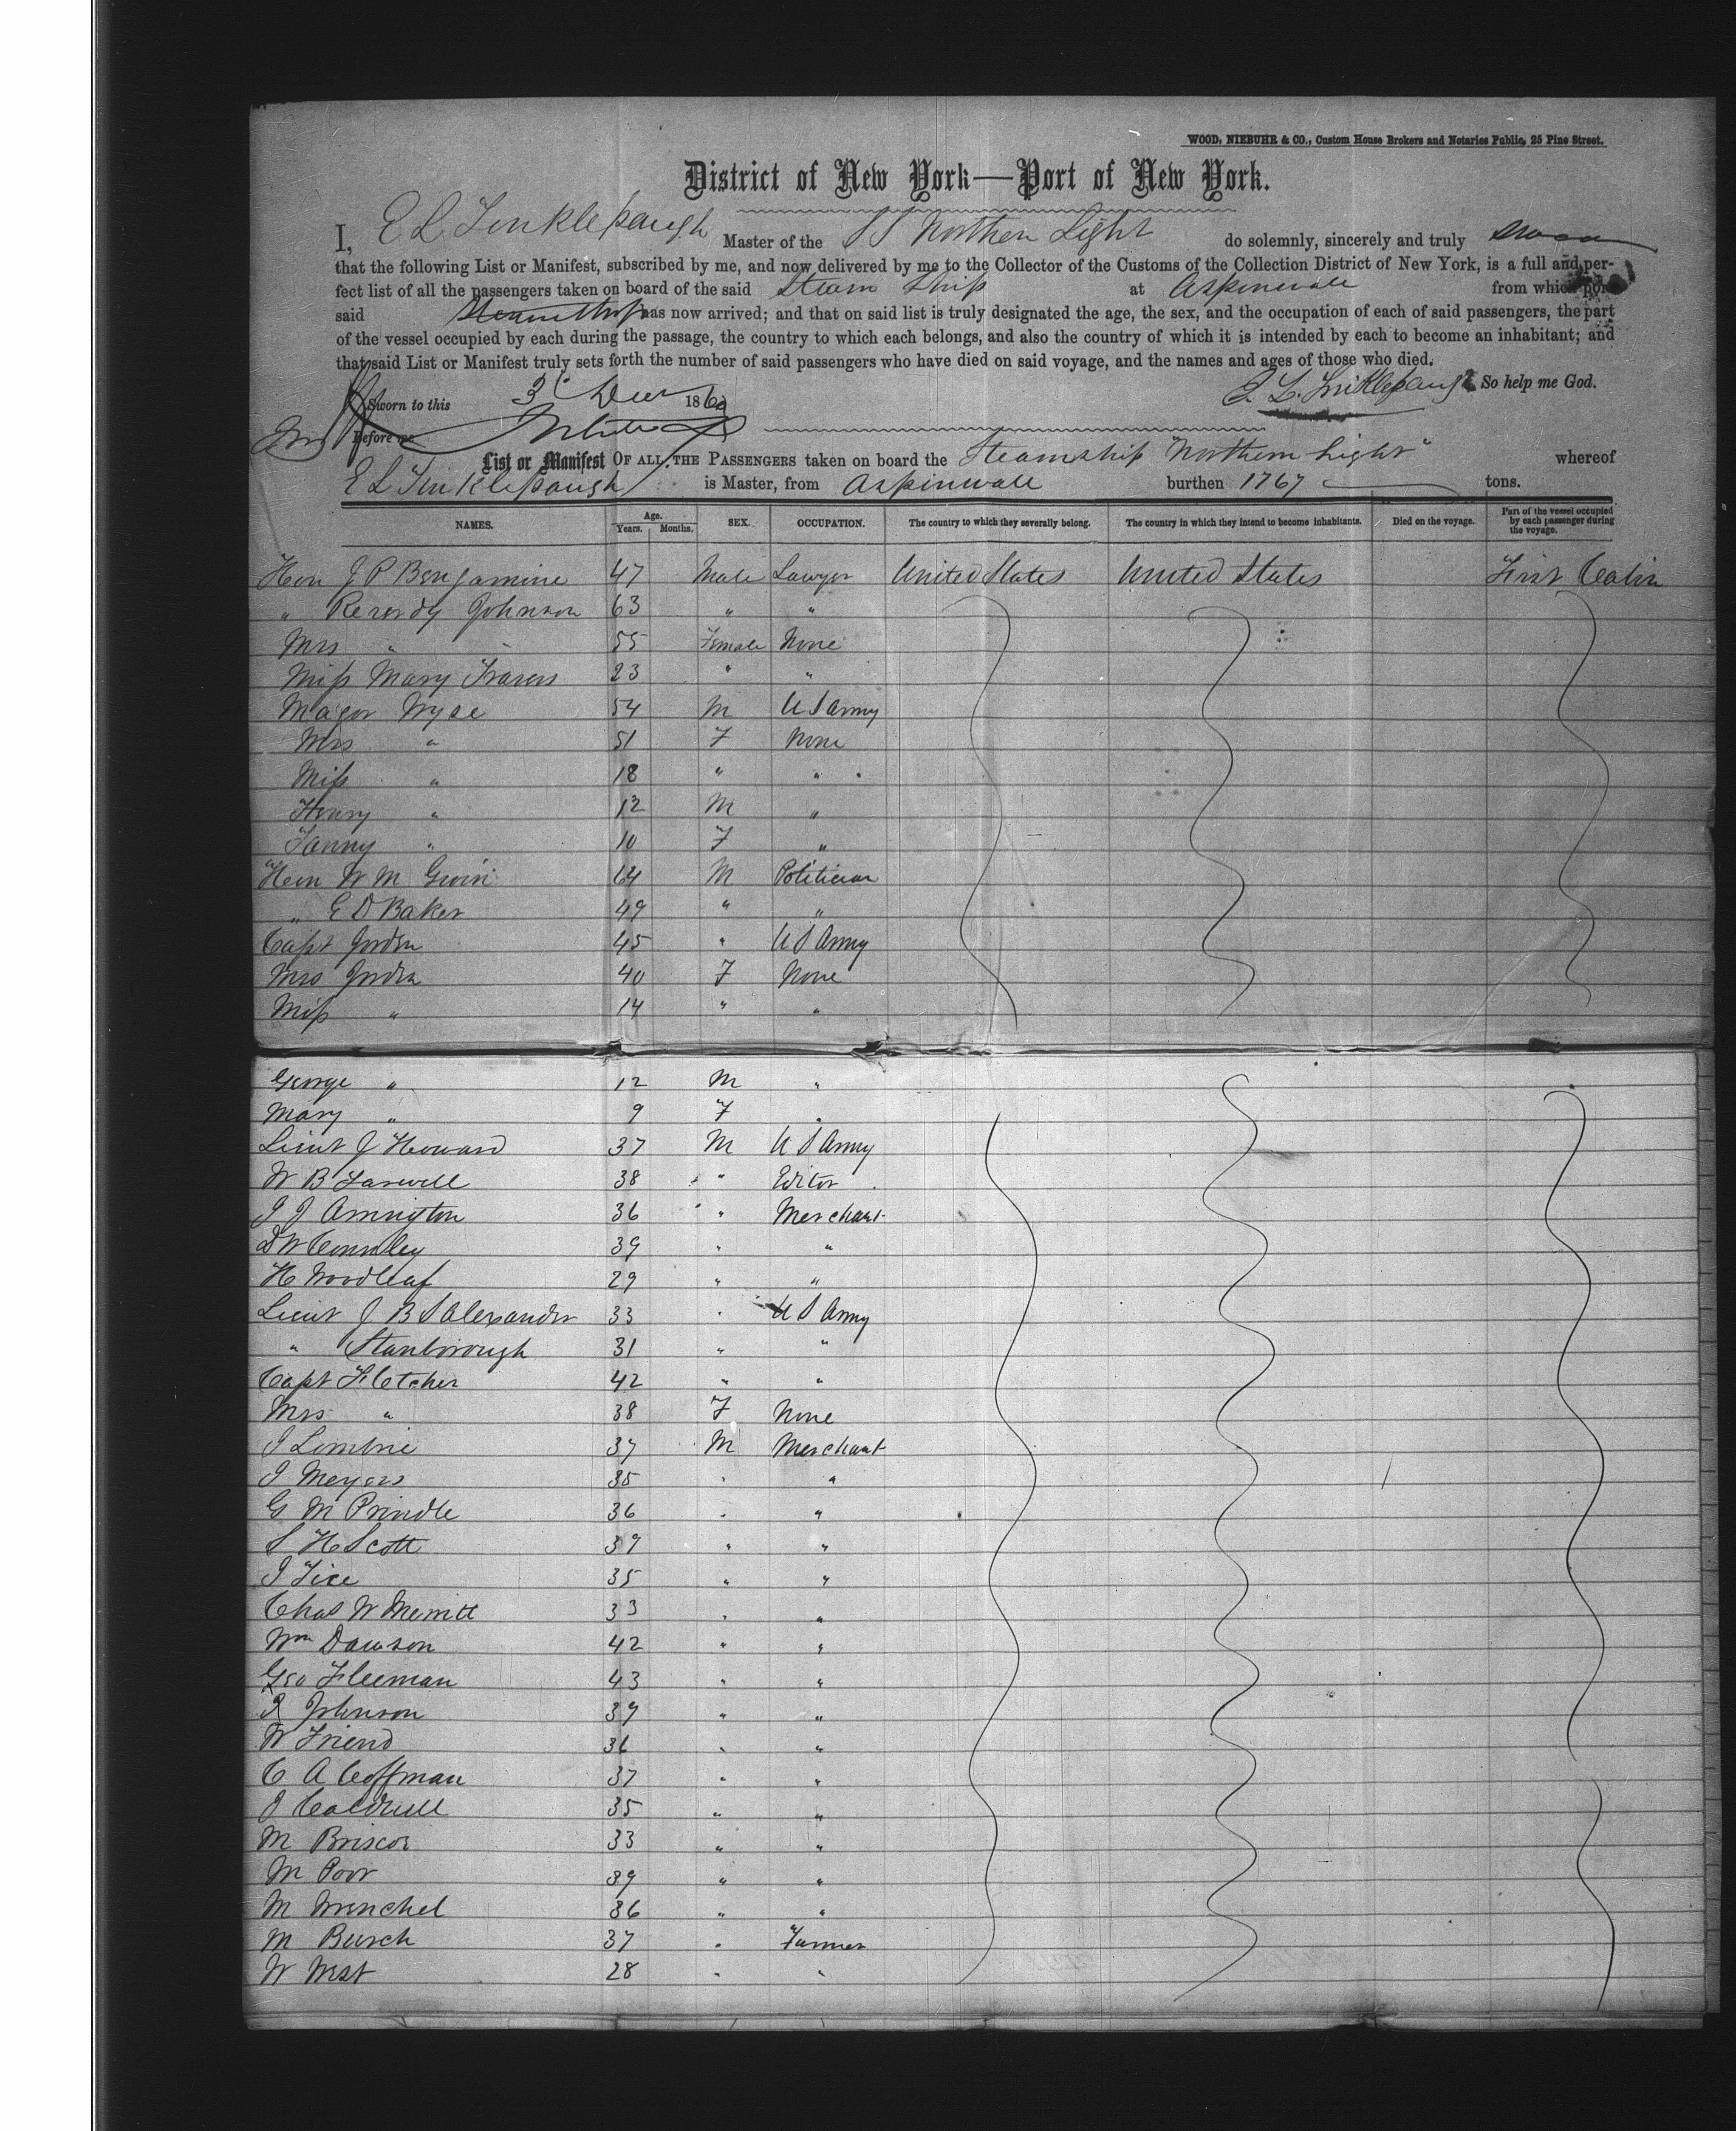 WOOD, NIEBUHR & CO., Custom House Brokers and Notaries Public, 25 Pine Street.
District of New York—Port of New York.
I, E L Tinklepaugh Master of the SS Northern Light do solemnly, sincerely and truly swear
that the following List or Manifest, subscribed by me, and now delivered by me to the Collector of the Customs of the Collection District of New York, is a full and per-
fect list of all the passengers taken on board of the said Steam Ship at Aspinwall from which port
said Steamship has now arrived; and that on said list is truly designated the age, the sex, and the occupation of each of said passengers, the part
of the vessel occupied by each during the passage, the country to which each belongs, and also the country of which it is intended by each to become an inhabitant; and
that said List or Manifest truly sets forth the number of said passengers who have died on said voyage, and the names and ages of those who died.
E. L. Tinklepaugh So help me God.
Sworn to this 3 Decr 1860
Before me
List or Manifest OF ALL THE PASSENGERS taken on board the Steamship "Northern Light" whereof
E L Tinklepaugh is Master, from Aspinwall burthen 1767 tons.
NAMES. Age. Years. Months. SEX. OCCUPATION. The country to which they severally belong. The country in which they intend to become inhabitants. Died on the voyage. Part of the vessel occupied by each passenger during the voyage.
Hon J P Benjamine 47 Male Lawyer United States United States First Cabin
" Reverdy Johnson 63 " "
Mrs " " 55 Female None
Miss Mary Travers 23 " "
Major Wyse 54 M U S Army
Mrs " 51 F None
Miss " 18 " "
Henry " 12 M "
Fanny " 10 F "
Hon W M Gwin 64 M Politician
" E D Baker 49 " "
Capt Jordan 45 " U S Army
Mrs Jordan 40 F None
Miss " 14 " "
George " 12 M "
Mary " 9 F "
Lieut J Howard 37 M U S Army
W B Farwell 38 " Editor
J J Arrington 36 " Merchant
D W Connley 39 " "
H Woodleaf 29 " "
Lieut J B S Alexander 33 " U S Army
" Stanborough 31 " "
Capt Fletcher 42 " "
Mrs " 38 F None
J Lombrie 37 M Merchant
J Meyers 35 " "
G M Prindle 36 " "
S H Scott 39 " "
J Tice 35 " "
Chas W Merritt 33 " "
Wm Dawson 42 " "
Geo Fleeman 43 " "
R Johnson 39 " "
W Friend 36 " "
C A Coffman 37 " "
J Caldwell 35 " "
M Briscoe 33 " "
M Poor 39 " "
M Wrenchel 36 " "
M Burch 37 " Farmer
W West 28 " "